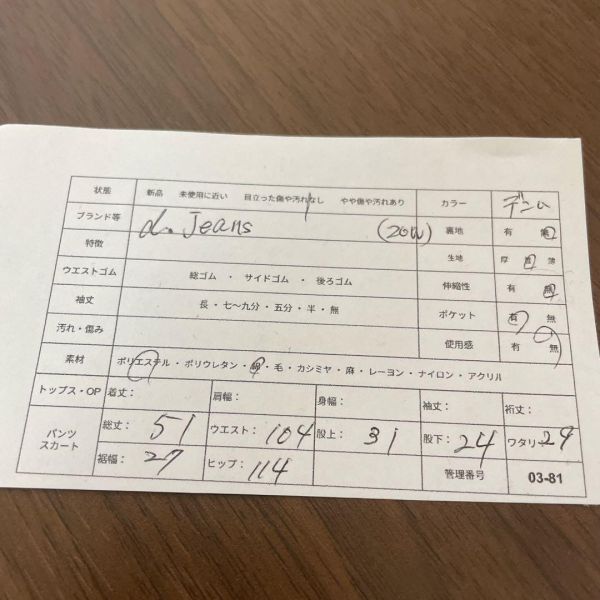 状態 新品 未使用に近い 目立った傷や汚れなし やや傷や汚れあり カラー デニム
ブランド等 d. Jeans (20W) 裏地 有 無
特徴 生地 厚 普 薄
ウエストゴム 総ゴム ・ サイドゴム ・ 後ろゴム 伸縮性 有 無
袖丈 長・七〜九分・五分・半・無 ポケット 有 無
汚れ・傷み 使用感 有 無
素材 ポリエステル・ポリウレタン・綿・毛・カシミヤ・麻・レーヨン・ナイロン・アクリル
トップス・OP 着丈: 肩幅: 身幅: 袖丈: 裄丈:
パンツ スカート 総丈: 51 ウエスト: 104 股上: 31 股下: 24 ワタリ: 29
裾幅: 27 ヒップ: 114 管理番号 03-81